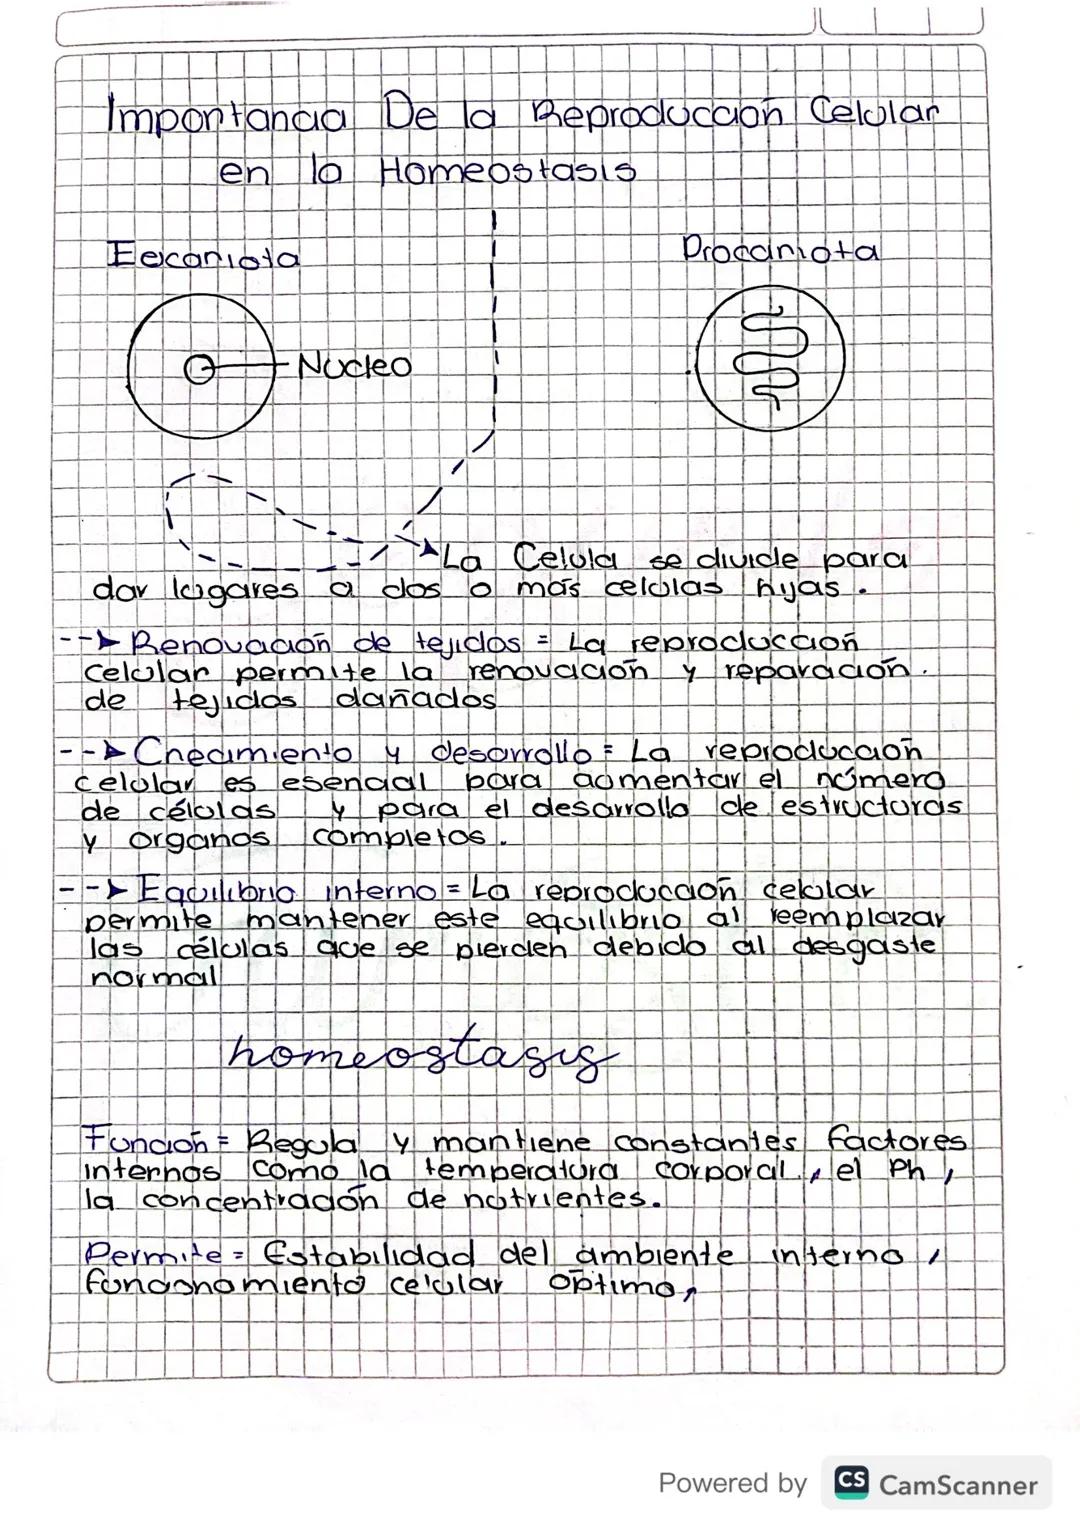 Importancia De la Reproducción Celular
en la Homeostasis
Eecariota
Procariota
Nucleo
La Celula se divide para
dar lugares a dos o más celulas hijas.
Renovación de tejidos = La reproducción
celular permite la renovación y reparación.
de tejidos dañados
Crecimiento y desarrollo = La reproducción
celular es esencial para aumentar el número
de células y para el desarrollo de estructuras
y organos completos.
Equilibrio interno = La reproducción celular
permite mantener este equilibrio al reemplazar
las células que se pierden debido al desgaste
normal
homeostasis
Función = Regula y mantiene constantes factores
internos como la temperatura corporal, el Ph,
la concentración de nutrientes.
Permite = Estabilidad del ambiente interno,
funcionamiento celular optimo,
Powered by CS CamScanner